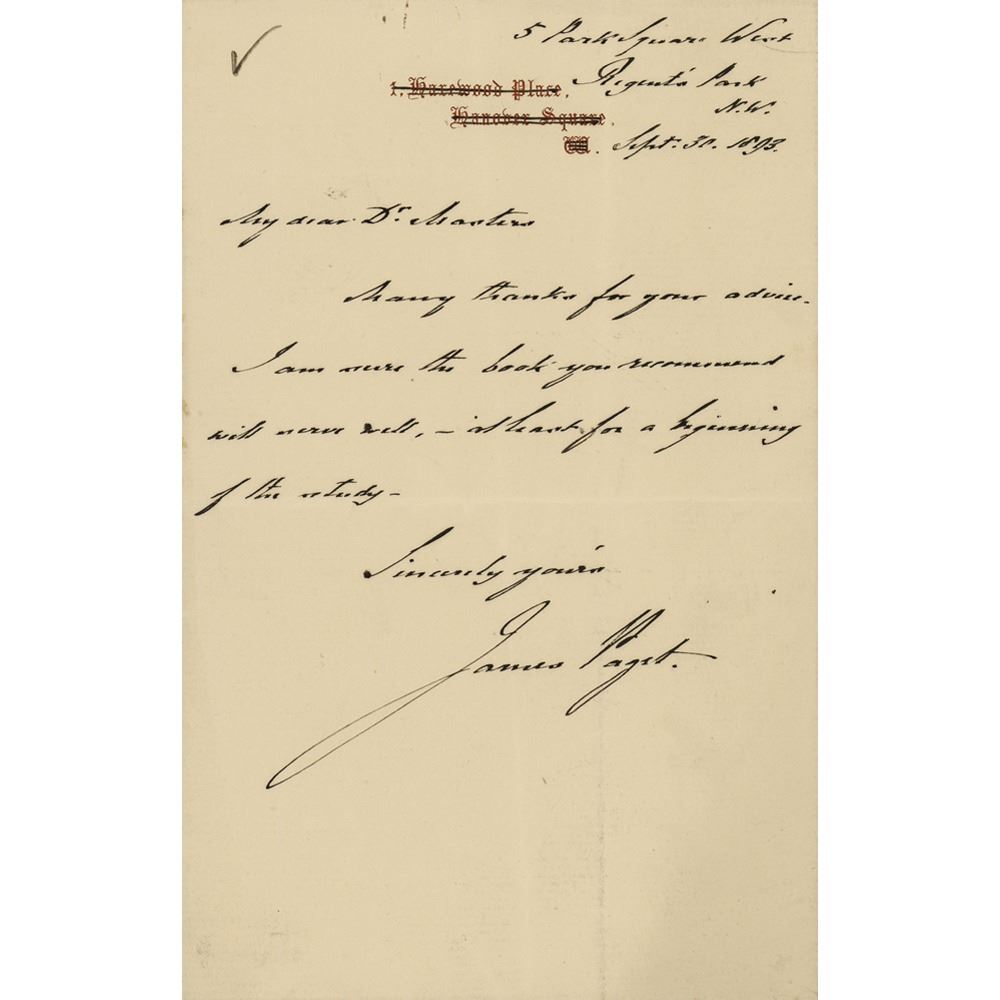 5 Park Square West
1. Harewood Place, Regent's Park
Hanover Square. N.W.
W. Sept. 30. 1893.
My dear Dr. Masters
Many thanks for your advice.
I am sure the book you recommend
will serve well, – at least for a beginning
of the study –
Sincerely yours
James Paget.